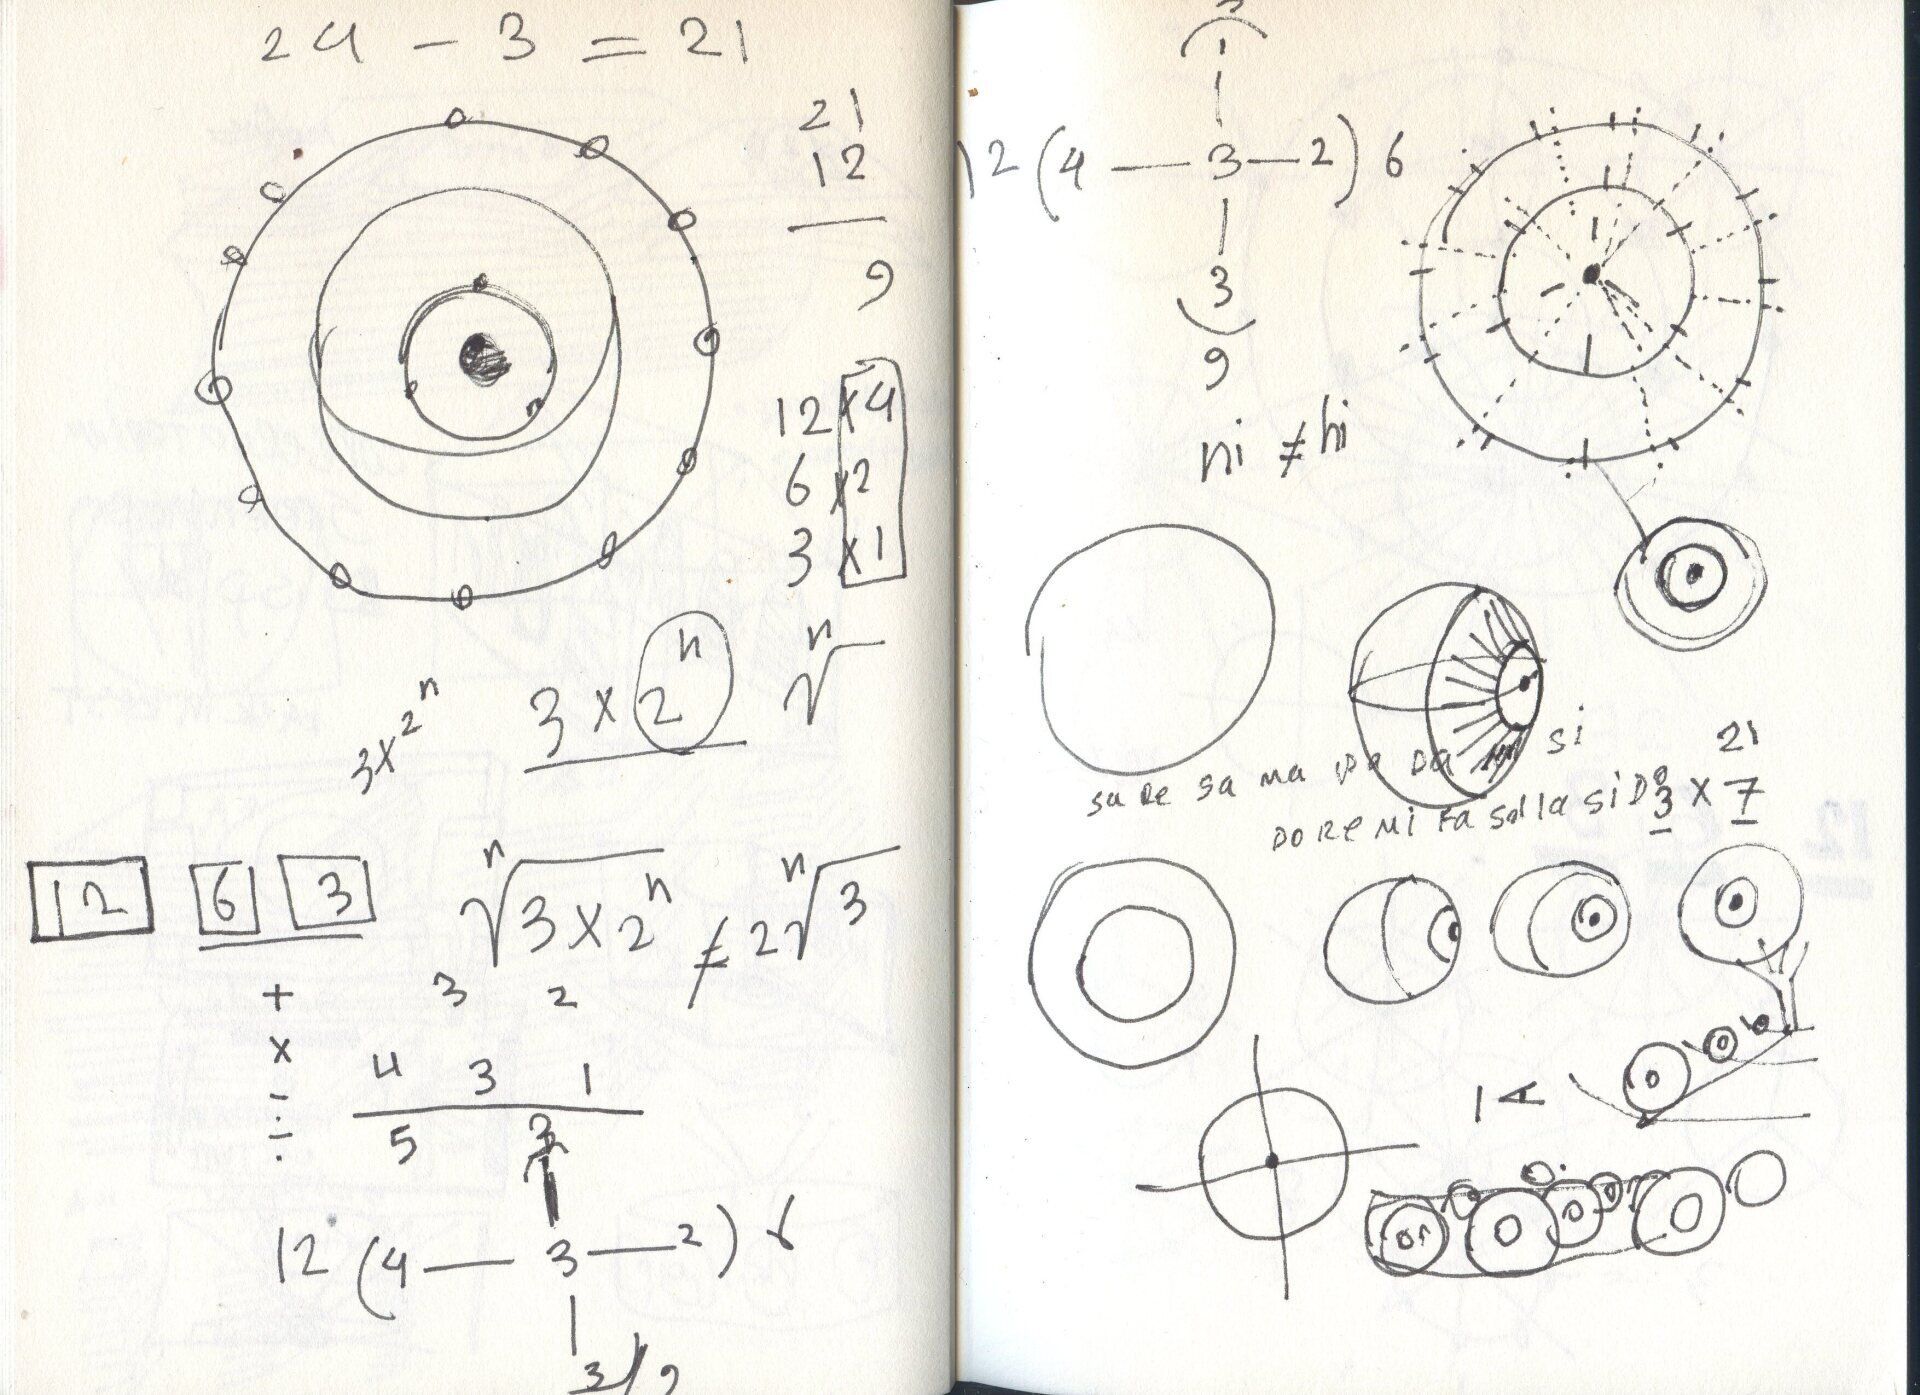 24 - 3 = 21
21
12
9
12 x 4
6 x 2
3 x 1
3x2ⁿ
3 x 2ⁿ
ⁿ√
12 6 3
ⁿ√3 x 2ⁿ ≠ 2 ⁿ√3
+ 3 2
x
4 3 1
-
÷
5
12 (4 — 3 — 2)
1
3
1
1
12 (4 — 3 — 2) 6
1
3
9
ni ≠ hi
sa Re sa ma pa Da si
21
DO RE MI FA Sol la Si Do
3 x 7
1 A